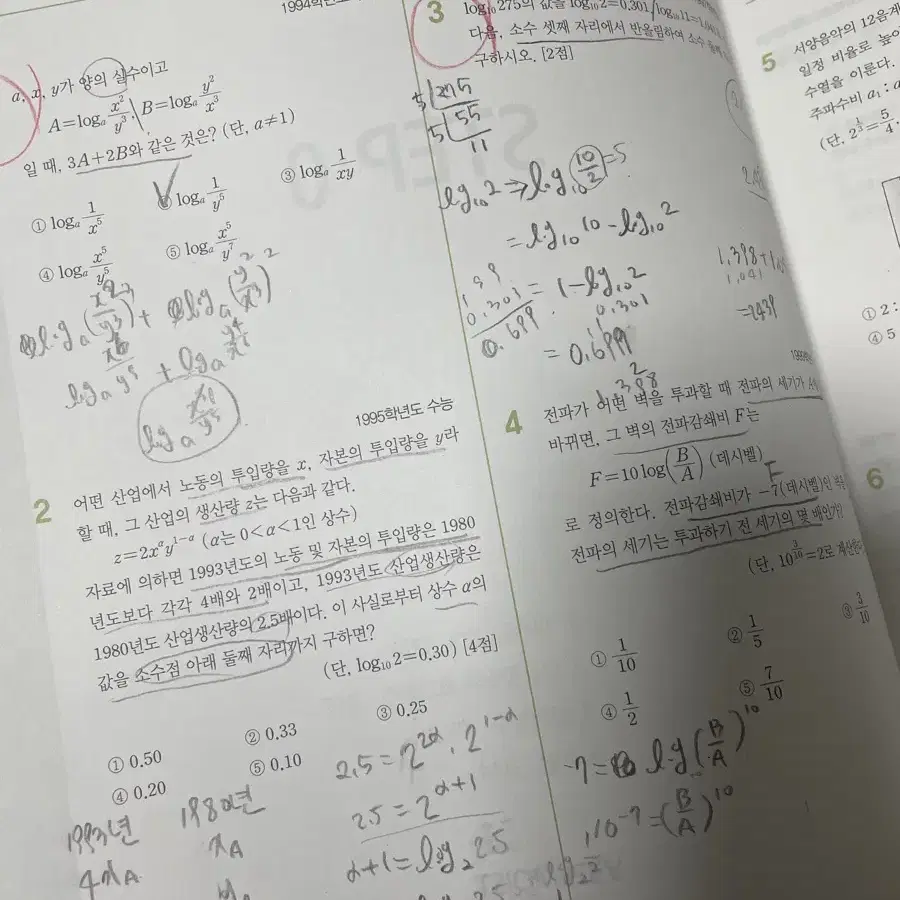 1994학년도
a, x, y가 양의 실수이고
A=logₐ x²/y³, B=logₐ y²/x³
일 때, 3A+2B와 같은 것은? (단, a≠1)
① logₐ 1/x⁵
② logₐ 1/y⁵
③ logₐ 1/xy
④ logₐ x⁵/y⁵
⑤ logₐ x⁵/y⁷
1995학년도 수능
2
어떤 산업에서 노동의 투입량을 x, 자본의 투입량을 y라
할 때, 그 산업의 생산량 z는 다음과 같다.
z=2x^α y^(1-α) (α는 0<α<1인 상수)
자료에 의하면 1993년도의 노동 및 자본의 투입량은 1980
년도보다 각각 4배와 2배이고, 1993년도 산업생산량은
1980년도 산업생산량의 2.5배이다. 이 사실로부터 상수 α의
값을 소수점 아래 둘째 자리까지 구하면?
(단, log₁₀2=0.30) [4점]
① 0.50
② 0.33
③ 0.25
④ 0.20
⑤ 0.10
1993년
1980년
4x_A
x_A
2.5=2^(2α)·2^(1-α)
2.5=2^(α+1)
α+1=log₂2.5
3
log₁₀275의 값을 log₁₀2=0.301, log₁₀11=
다음, 소수 셋째 자리에서 반올림하여 소수
구하시오. [2점]
5 275
5 55
11
log₁₀2 ⇒ log₁₀(10/2)=5
=log₁₀10-log₁₀2
=1-log₁₀2
0.301
=0.699
0.301
0.699
1.041
4
전파가 어떤 벽을 투과할 때 전파의 세기가
바뀌면, 그 벽의 전파감쇄비 F는
F=10log(B/A) (데시벨)
F
로 정의한다. 전파감쇄비가 -7(데시벨)인
전파의 세기는 투과하기 전 세기의 몇 배인가?
(단, 10^(3/10)=2로
① 1/10
② 1/5
③ 3/10
④ 1/2
⑤ 7/10
-7= log(B/A)¹⁰
10⁻⁷=(B/A)¹⁰
5
서양음악의 12음계
일정 비율로 높아
수열을 이룬다.
주파수비 a₁ : a
(단, 2^(1/3)=5/4,
① 2 :
④ 5
6